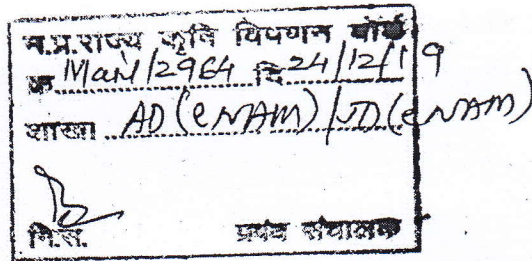 म.प्र.राज्य कृषि विपणन बोर्ड
क्र Mail/2964 दि 24/12/19
शाखा AD (eNAM) / JD (eNAM)
नि.स. प्रबंध संचालक